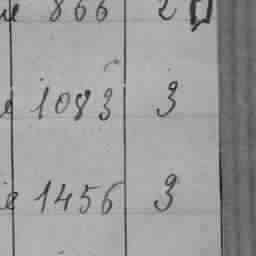 866 2
1083 3
1456 3